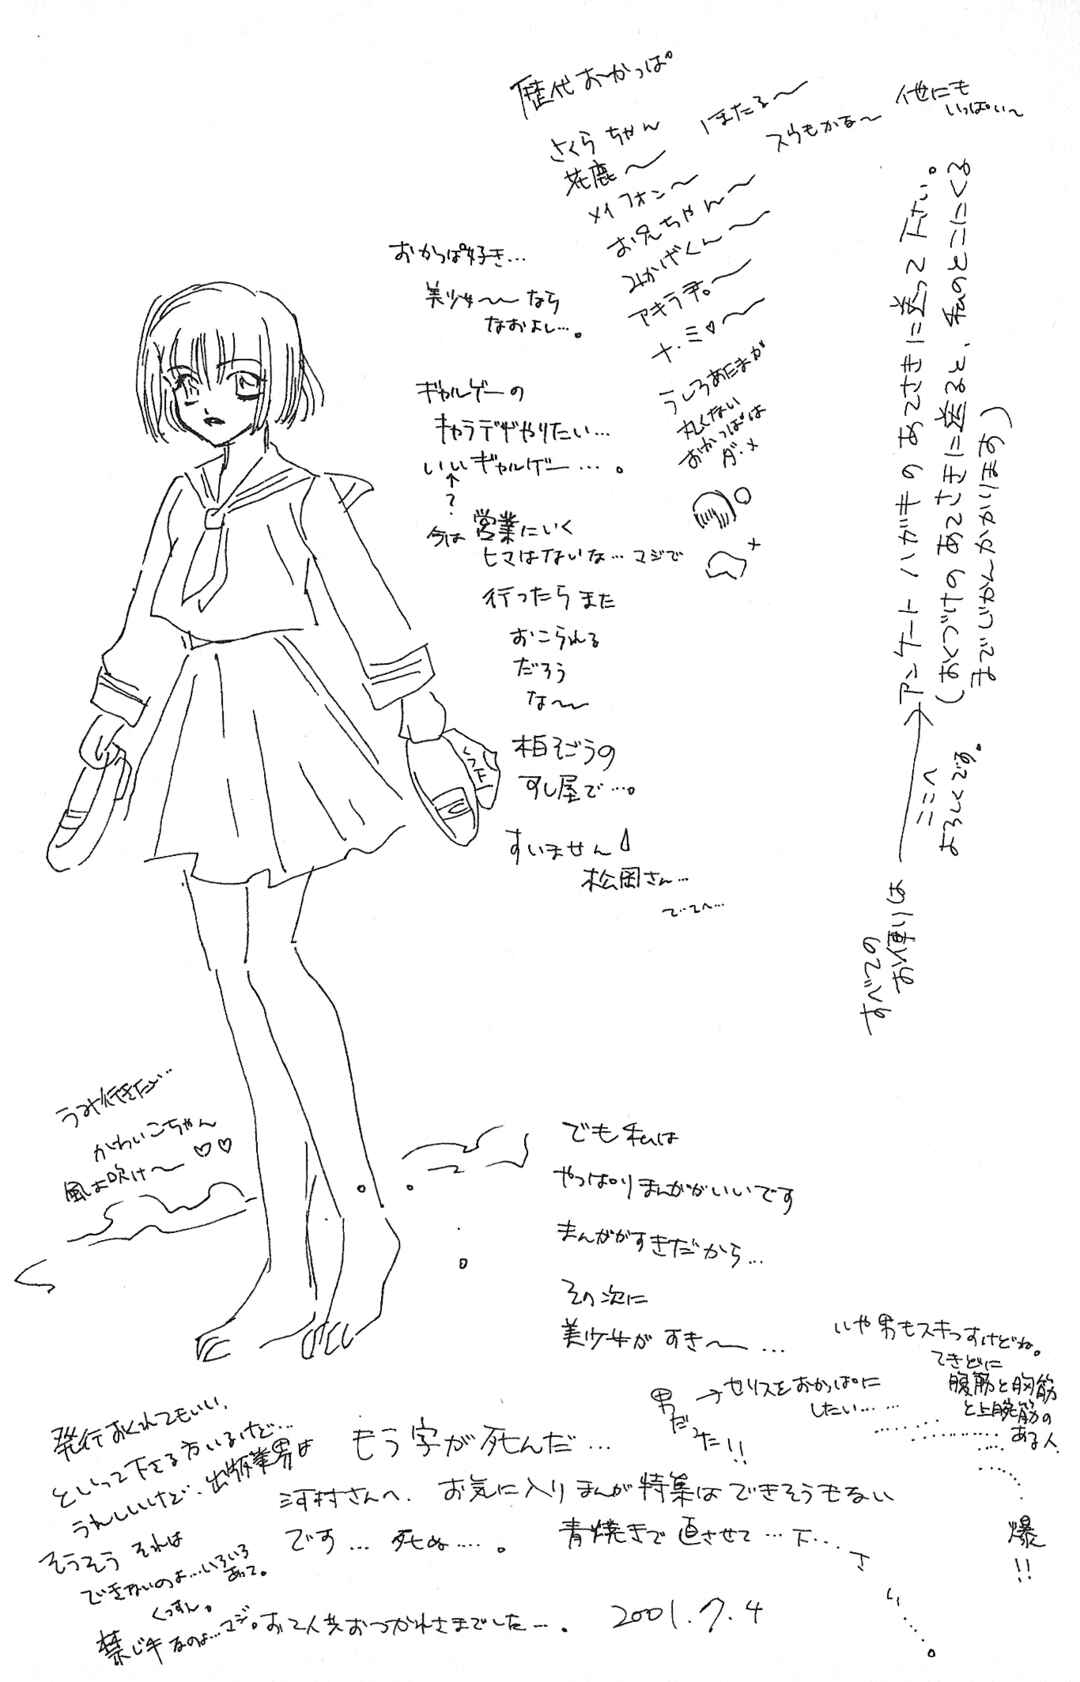 歴代おかっぱ
さくらちゃん
ほたる〜
スウもかな〜
他にも
いっぱい〜
花鹿〜
メイフォン〜
お兄ちゃん〜
みかげくん〜
アキラ君。〜
ナ・ミ♡〜
うしろあたまが
丸くない
おかっぱは
ダ・メ
おかっぱ好き…
美少女〜なら
なおよし…。
ギャルゲーの
キャラデザやりたい…
いいギャルゲー…。
↑
?
今は営業にいく
ヒマはないな…マジで
行ったらまた
おこられる
だろう
な〜
柏そごうの
すし屋で…。
すいません
松岡さん…
でへへ…
お便りは
すべての
→アンケートハガキのあてさきに送って下さい。
(おくづけのあてさきに送ると、私のとこにくる
までじかんかかります)
ここへ
よろしくです。
うみ行きたい
かわいこちゃん
風よ吹け〜♡♡
でも私は
やっぱりまんががいいです
まんががすきだから…
その次に
美少女がすき〜…
いや男もスキっすけどね。
てきどに
腹筋と胸筋
と上腕筋の
ある人
男だった!!
→セリスをおかっぱに
したい……
爆!!
発行おくれてもいい、
といって下さる方いるけど…
うれしいけど、出版業界は
そうそうそれは
できないのよ…いろいろ
あって。
くっすん。
禁じ手なのよ…マジ。
もう字が死んだ…
河村さんへ、お気に入りまんが特集はできそうもない
です…死ぬ…。青焼きで直させて…下…さ
い……。
お2人共おつかれさまでした…。
2001.7.4